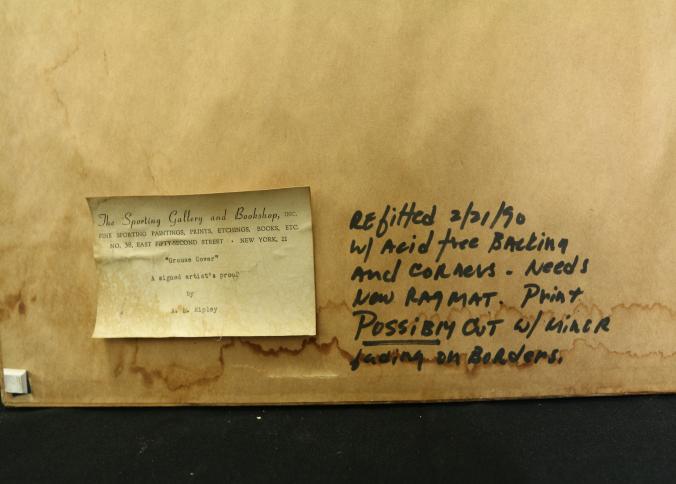 The Sporting Gallery and Bookshop, INC.
FINE SPORTING PAINTINGS, PRINTS, ETCHINGS, BOOKS, ETC.
NO. 38, EAST FIFTY-SECOND STREET · NEW YORK, 22
"Grouse Cover"
A signed artist's proof
by
A. L. Ripley
REfitted 2/21/90
w/ Acid free Backing
And CORNERS - Needs
New RAG MAT. Print
POSSIBLY CUT w/ MINOR
fading on Borders.